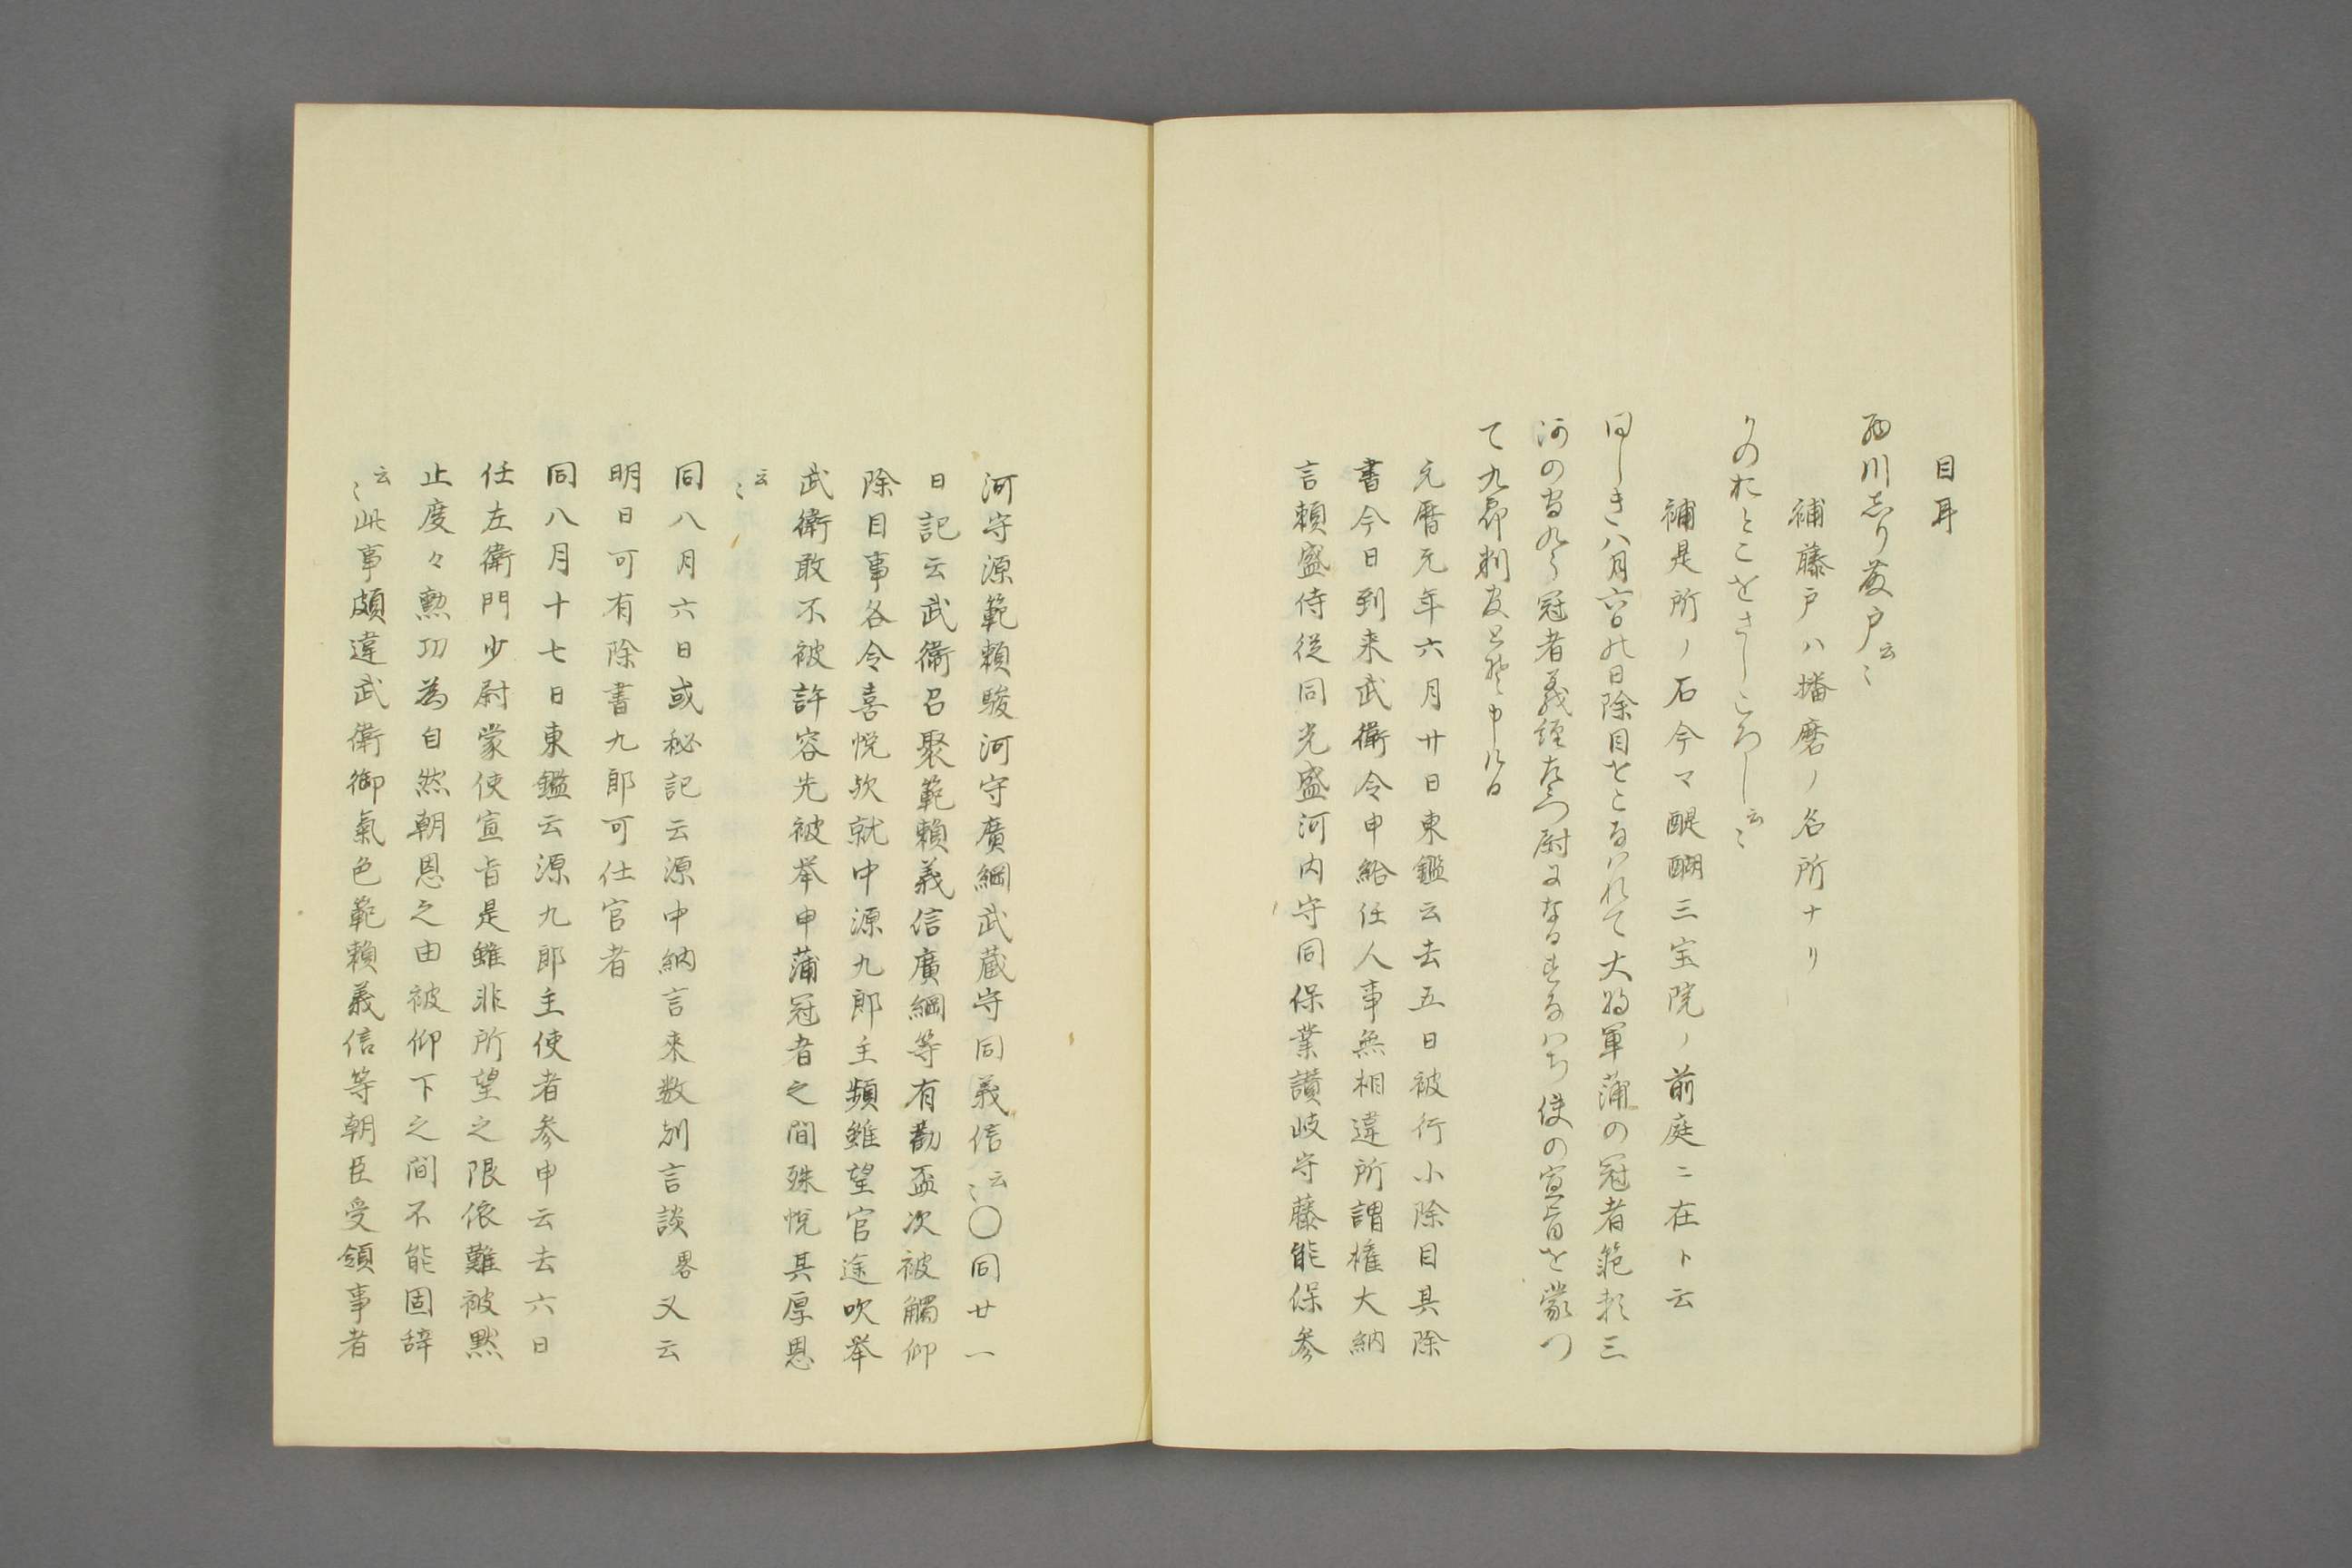 目耳
西川志り藤戸云〻
補藤戸ハ播磨ノ名所ナリ
りのおとこをさしころし云〻
補是所ノ石今マ醍醐三宝院ノ前庭ニ在ト云
同しき八月六日の日除目をこなはれて大将軍蒲の冠者範頼三
河の守九郎冠者義経左衛門尉になるすなはち使の宣旨を蒙つ
て九郎判官とそ申ける
元暦元年六月廿日東鑑云去五日被行小除目其除
書今日到来武衛令申給任人事無相違所謂権大納
言頼盛侍従同光盛河内守同保業讃岐守藤能保参
河守源範頼駿河守廣綱武蔵守同義信云〻〇同廿一
日記云武衛召聚範頼義信廣綱等有勸盃次被觸仰
除目事各令喜悦欤就中源九郎主頻雖望官途吹挙
武衛敢不被許容先被挙申蒲冠者之間殊悦其厚恩
云〻
同八月六日或秘記云源中納言来数刻言談畧又云
明日可有除書九郎可仕官者
同八月十七日東鑑云源九郎主使者参申云去六日
任左衛門少尉蒙使宣旨是雖非所望之限依難被黙
止度々勲功為自然朝恩之由被仰下之間不能固辞
云〻此事頗違武衛御氣色範頼義信等朝臣受領事者